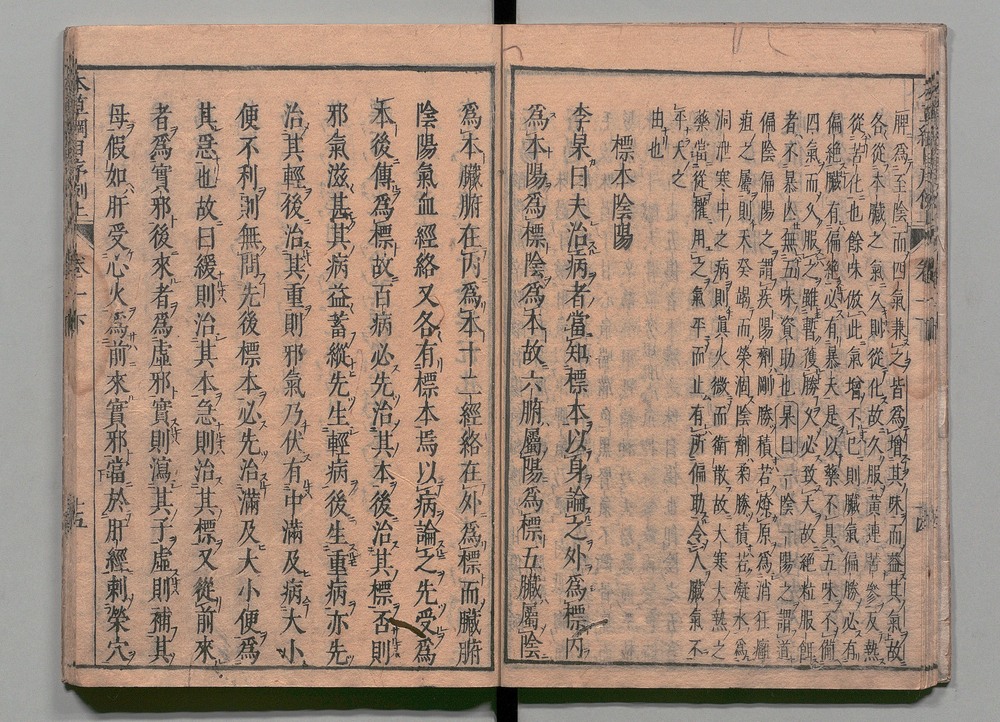 脾爲至陰而四氣兼之皆爲增其味而益其氣故
各從本臟之氣久則從化故久服黃連苦參反熱
從苦化也餘味倣此氣增不已則臟氣偏勝必有
偏絕臟有偏絕必有暴夭是以藥不具五味不備
四氣而久服之雖暫獲勝久必致夭故絕粒服餌
者不暴亾無五味資助也杲曰一陰一陽之謂道
偏陰偏陽之謂疾陽劑剛勝積若燎原爲消狂癰
疽之屬則天癸竭而榮涸陰劑柔勝積若凝水爲
洞泄寒中之病則眞火微而衛散故大寒大熱之
藥當從權用之氣平而止有所偏助令人臟氣不
平夭之
由也
標本陰陽
李杲曰夫治病者當知標本以身論之外爲標内
爲本陽爲標陰爲本故六腑屬陽爲標五臟屬陰
爲本臟腑在内爲本十二經絡在外爲標而臟腑
陰陽氣血經絡又各有標本焉以病論之先受爲
本後傳爲標故百病必先治其本後治其標否則
邪氣滋甚其病益蓄縱先生輕病後生重病亦先
治其輕後治其重則邪氣乃伏有中滿及病大小
便不利則無問先後標本必先治滿及大小便爲
其急也故曰緩則治其本急則治其標又從前來
者爲實邪後來者爲虛邪實則瀉其子虛則補其
母假如肝受心火爲前來實邪當於肝經刺榮穴
本草綱目序例上
卷一下